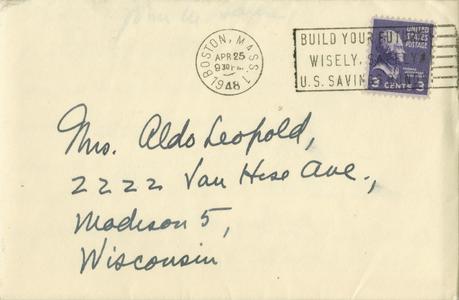 BOSTON, MASS. 1
APR 25
9 30 PM
1948
BUILD YOUR FUTURE
WISELY, SAFELY
U.S. SAVINGS
UNITED
STATES
POSTAGE
3 CENTS 3
Mrs. Aldo Leopold,
2222 Van Hise Ave.,
Madison 5,
Wisconsin